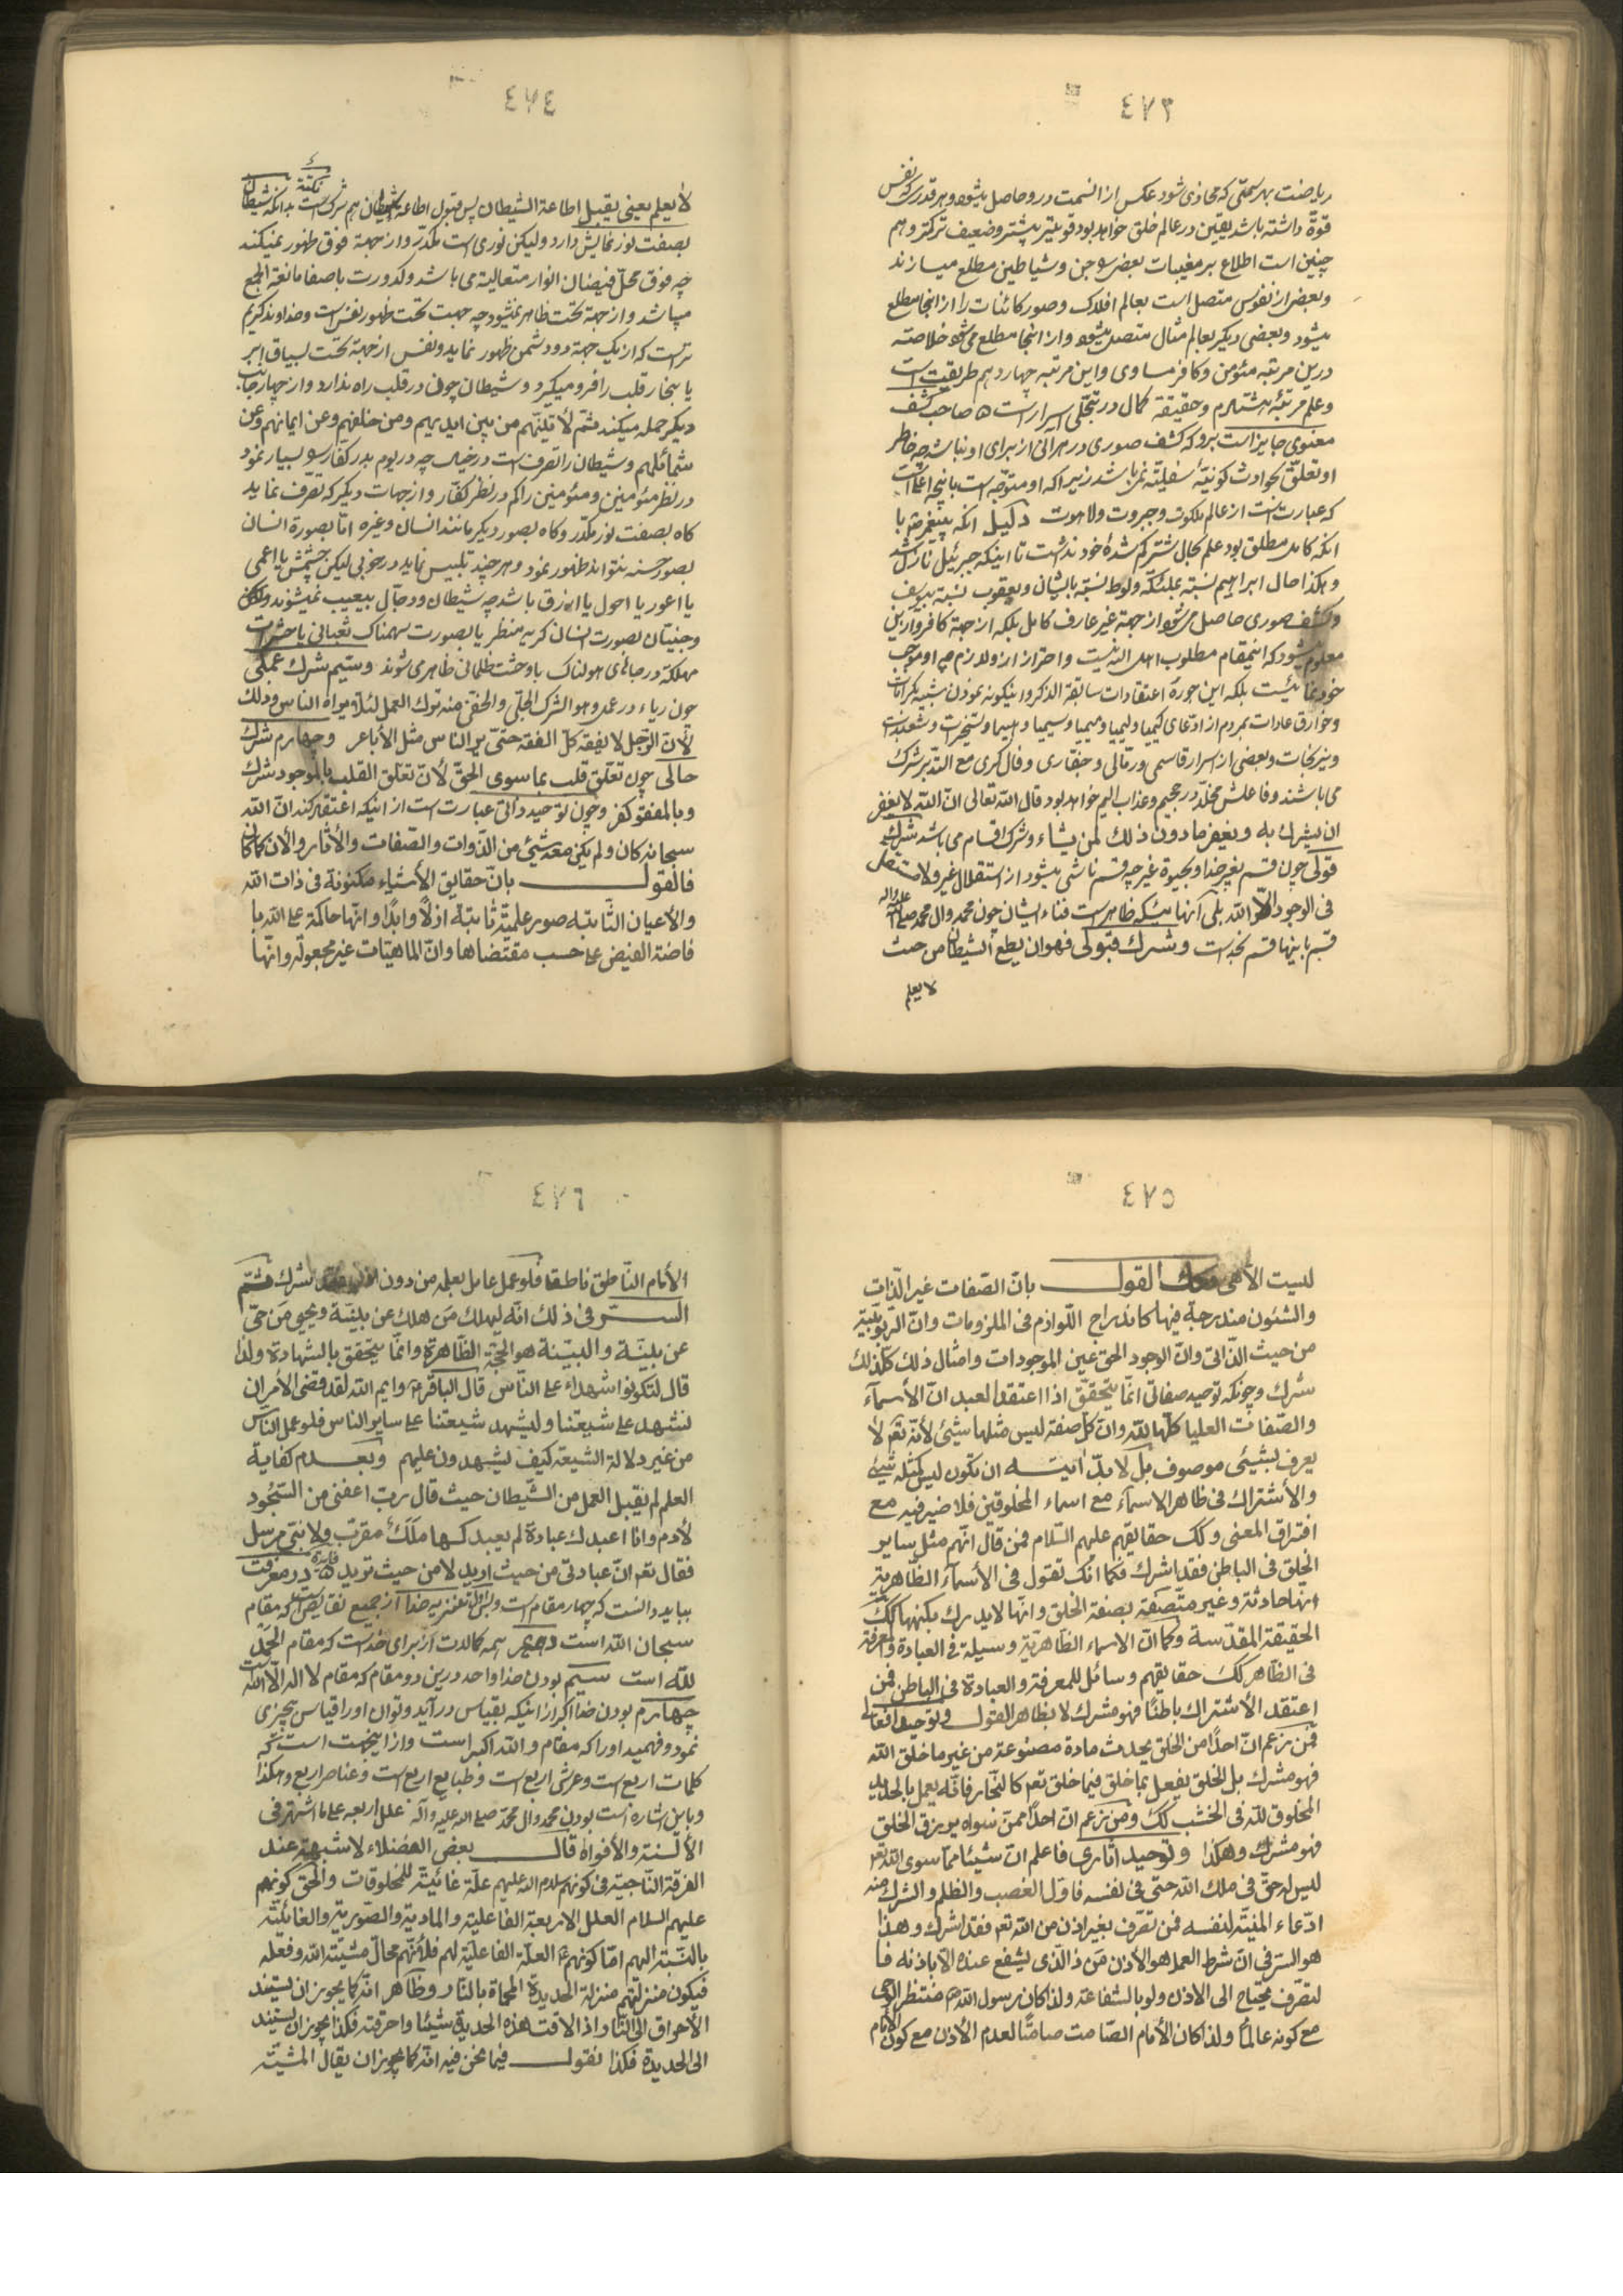 ٤٧٣
ریاضت بهر سمتی که محاذی شود عکس از آنسمت در او حاصل میشود و هر قدر که نفس
قوة داشته باشد یقین در عالم خلق خواهد بود قویتر بیشتر و ضعیف ترکتر و هم
چنین است اطلاع بر مغیبات بعضی را جن و شیاطین مطلع میسازند
و بعضی از نفوس متصل است بعالم افلاک و صور کائنات را از اینجا مطلع
میشود و بعضی دیگر بعالم مثال متصل میشود و از آنجا مطلع می شود خلاصته
درین مرتبه مئومن و کافر مساوی و این مرتبه چهاردهم طریقیت است
و علم مرتبهٔ هشتادم و حقیقة کمال در تجلی اسرار است صاحب کشف
معنوی جایز است برو که کشف صوری در هر الی از برای او نباشد چه خاطر
او تعلّق بحوادث کونیّهٔ سفلیّه نمی باشد زیرا که او متوجّه است بانچه اعلی است
که عبارت است از عالم ملکوت و جبروت و لاهوت دلیل آنکه پیغمبر با
آنکه کامل مطلق بود علم بحال شتر کم شدهٔ خود نداشت تا اینکه جبرئیل نازل شد
و هکذا حال ابراهیم نسبة بملئکه و لوط نسبة بایشان و یعقوب نسبة بیوسف
و کشف صوری حاصل می شود از جهة غیر عارف کامل بلکه از جهة کافر و ازین
معلوم میشود که اینمقام مطلوب اهل الله نیست و احتراز از و لازم چه او موجب
خود نمائیست بلکه این جوره اعتقادات سابقة الذکر و اینکونه نمودن شبیه بکرامات
و خوارق عادات بمردم از ادعای کیمیا و لیمیا و هیمیا و سیمیا و ریمیا و تسخیرات و شعبدات
و نیرنجات و بعضی از اسرار قاسمی و رمّالی و جفّاری و فال کری مع التدبر شرک
می باشند و فاعلش مخلّد در جحیم و عذاب الیم خواهد بود قال الله تعالی انّ الله لا یغفر
ان یشرك به و یغفر ما دون ذلك لمن یشاء و شرک اقسام می باشد شرک
قولی چون قسم بغیر خدا و بحیوة غیر چه قسم ناشی میشود از استقلال غیر و لا مستقل
فی الوجود الّا الله بلی آنهائیکه ظاهر است فناء ایشان چون محمد و ال محمد صلی الله علیه و اله
قسم باینها قسم بخداست و شرك قبولی فهو ان یطع الشیطان من حیث
لا یعلم
٤٧٤
لا یعلم یعنی یقبل اطاعة الشیطان پس قبول اطاعة شیطان هم شرک است نکتة بدانکه شیطان
بصفت نور نمایش دارد و لیکن نوری است مکدّر و از جهة فوق ظهور نمیکند
چه فوق محل فیضان انوار متعالیة می باشد و کدورت باصفا مانعة الجمع
میباشد و از جهة تحت ظاهر نمیشود چه جهت تحت ظهور نفس است و خداوند کریم
تر است که از یک جهة دو دشمن ظهور نماید و نفس از جهة تحت
یا بخار قلب را فرو میکیرد و شیطان چون در قلب راه ندارد و از چهار جانب
دیکر حمله میکند ثمّ لأتینّهم من بین ایدیهم و من خلفهم و عن ایمانهم و عن
شمائلهم و شیطان را تصرف است در خیال چه در یوم بدر کفار را بسیار نمود
در نظر مئومنین و مئومنین را کم در نظر کفّار و از جهات دیکر که تصّرف نماید
کاه بصفت نور مکدّر و کاه بصور دیکر مانند انسان و غیره امّا بصورة انسان
بصور حسنه نتواند ظهور نمود و هر چند تلبیس نماید در خوبی لیکن چشمش یا اعمی
یا اعور یا احول یا ازرق باشد چه شیطان و دجّال بیعیب نمیشوند
و جنیّان بصورت انسان کریه منظر یا بصورت سهمناک ثعبانی یا حشرات
مهلکة در جاهای هولناک باوحشت ظلمانی ظاهر می شوند و سیّم شرک عملی
چون ریاء در عمل و هو الشرك الجلی و الخفی منه ترك العمل لئلّا یراه الناس و ذلك
لأنّ الرّجل لا یفقه کلّ الفقه حتّی یری الناس مثل الأباعر و چهارم شرك
حالی چون تعلق قلب بما سوی الحقّ لأن تعلّق القلب بالموجود شرك
و بالمفقود کفر و چون توحید ذاتی عبارت است از اینکه اعتقاد کند انّ الله
سبحانه کان و لم یکن معه شیئ من الذّوات و الصّفات و الأثار و الأن کما کان
فالقول بانّ حقایق الأشیاء مکنونة فی ذات الله
و الأعیان الثّابته صور علمیّة ثابتة ازلاً و ابدًا و انّها حاکمة علی الله با
فاضة الفیض علی حسب مقتضاها و انّ الماهیّات غیر مجعولة و انّها
٤٧٥
لیست الأهی القول بانّ الصّفات غیر الذّات
و الشئون مندرجة فیها کاندراج اللّوازم فی الملزومات و انّ الرّبوبیّة
من حیث الذّاتی و انّ الوجود الحق عین الموجودات و امثال ذلك کلّ ذلك
شرك و چونکه توحید صفاتی انّما یتحقّق اذا اعتقد العبد انّ الأسمآء
و الصّفات العلیا کلّها لله و انّ کلّ صفة لیس مثلها شیئ لأنّه تعم لا
یعرف بشیئی موصوف بل لا بدّ ان یکون لیس کمثله شیئ
و الأشتراك فی ظاهر الاسمآء مع اسماء المخلوقین فلا ضیر فیه مع
افتراق المعنی و کك حقایقهم علیهم السّلام فمن قال انّهم مثل سایر
الخلق فی الباطن فقد اشرك فکما انك تقول فی الأسمآء الظّاهریّة
انّها حادثة و غیر متّصفة بصفة الخلق و انّها لا یدرك بکنهها ککّ
الحقیقة المقدّسة و کما انّ الاسماء الظّاهریّة وسیلة فی العبادة و المعرفة
فی الظّاهر کك حقایقهم وسائل للمعرفة و العبادة فی الباطن فمن
اعتقد الأشتراك باطنًا فهو مشرك لا بظاهر القول و توحید افعالی
فمن زعم انّ احدًا من الخلق یحدث مادة مصنوعة من غیر ما خلق الله
فهو مشرك بل الخلق یفعل بما خلق فیما خلق تعم کالنّجار فانّه یعمل بالحدید
المخلوق لله فی الخشب کك و من زعم انّ احدًا ممّن سواه یرزق الخلق
فهو مشرك و هکذا و توحید آثاری فاعلم انّ شیئا ممّا سوی الله تعم
لیس له حقّ فی ملك الله حتّی فی نفسه فاوّل الغصب و الظلم و الشرك منه
ادّعاء المنیّة لنفسه فمن تصّرف بغیر اذن من الله تعم فقد اشرك و هذا
هو السّر فی انّ شرط العمل هو الأذن مَن ذا الّذی یشفع عنده الّا باذنه فا
لتصّرف محتاج الی الاذن و لو بالشفاعة و لذا کان رسول الله منتظر الوحی
مع کونه عالماً و لذا کان الأمام الصّامت صامتًا لعدم الأذن مع کون الأمام
٤٧٦
الأمام النّاطق ناطقا فلو عمل عامل بعلمه من دون اذن فقد شرك ثمّ
السرّ فی ذلك انّه لیهلك مَن هلك عن بیّنة و یحیی مَن حیّ
عن بیّنة و البیّنة هو الحجّة الظّاهرة و انّما یتحقق بالشهادة و لذا
قال لتکونوا شهداء علی الناس قال الباقر و ایم الله لقد قضی الأمر ان
نشهد علی شیعتنا و لیشهد شیعتنا علی سایر الناس فلو عمل الناس
من غیر دلالة الشیعة کیف یشهدون علیهم و بعدم کفایة
العلم لم یقبل العمل من الشّیطان حیث قال ربّ اعفنی من السّجود
لأدم و انا اعبدك عبادة لم یعبدکها مَلَكٌ مقرّب و لا نبیّ مرسل
فقال تعم انّ عبادتی من حیث ارید لا من حیث ترید فایدة در معرفت
بباید دانست که چهار مقام است اوّل تنزیه خدا از جمیع نقایص است که مقام
سبحان الله است دویم همه کمالات از برای خداست که مقام الحمد
لله است سیّم بودن خدا واحد درین دو مقام که مقام لا اله الّا الله است
چهارم بودن خدا اکبر از اینکه بقیاس در آید و توان او را قیاس بچیزی
نمود و فهمید او را که مقام و الله اکبر است و از اینجهت است که
کلمات اربع است و عرش اربع است و طبایع اربع است و عناصر اربع و هکذا
و باین اشاره است بودن محمد و ال محمّد صلی الله علیه و آله علل اربعه علی ما اشتهر فی
الألسنة و الأفواه قال بعض الفضلاء لا شبهة عند
الفرقة النّاجیة فی کونهم سلام الله علیهم علّة غائیّة للمخلوقات و الحق کونهم
علیهم السلام العلل الاربعة الفاعلیّة و المادیّة و الصّوریّة و الغائیّة
بالنّسبة الیهم امّا کونهم العلّة الفاعلیّة لهم فلأنّهم محالّ مشیّة الله و فعله
فیکون منزلتهم منزلة الحدیدة المحماة بالنّار و ظاهر انّه کما یجوز ان یستند
الأحراق الی النّار اذا لاقت هذه الحدیدة شیئا و احرقته فکذا یجوز ان یستند
الی الحدیدة فکذا نقول فیما نحن فیه انّه کما یجوز ان یقال المشیّة